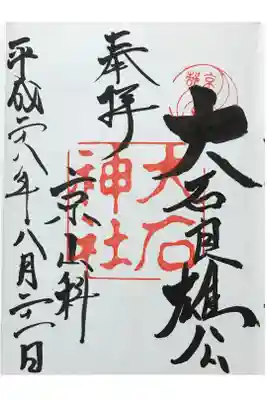 大石良雄公
京都
奉拝
大石神社
京山科
平成二八年八月二一日